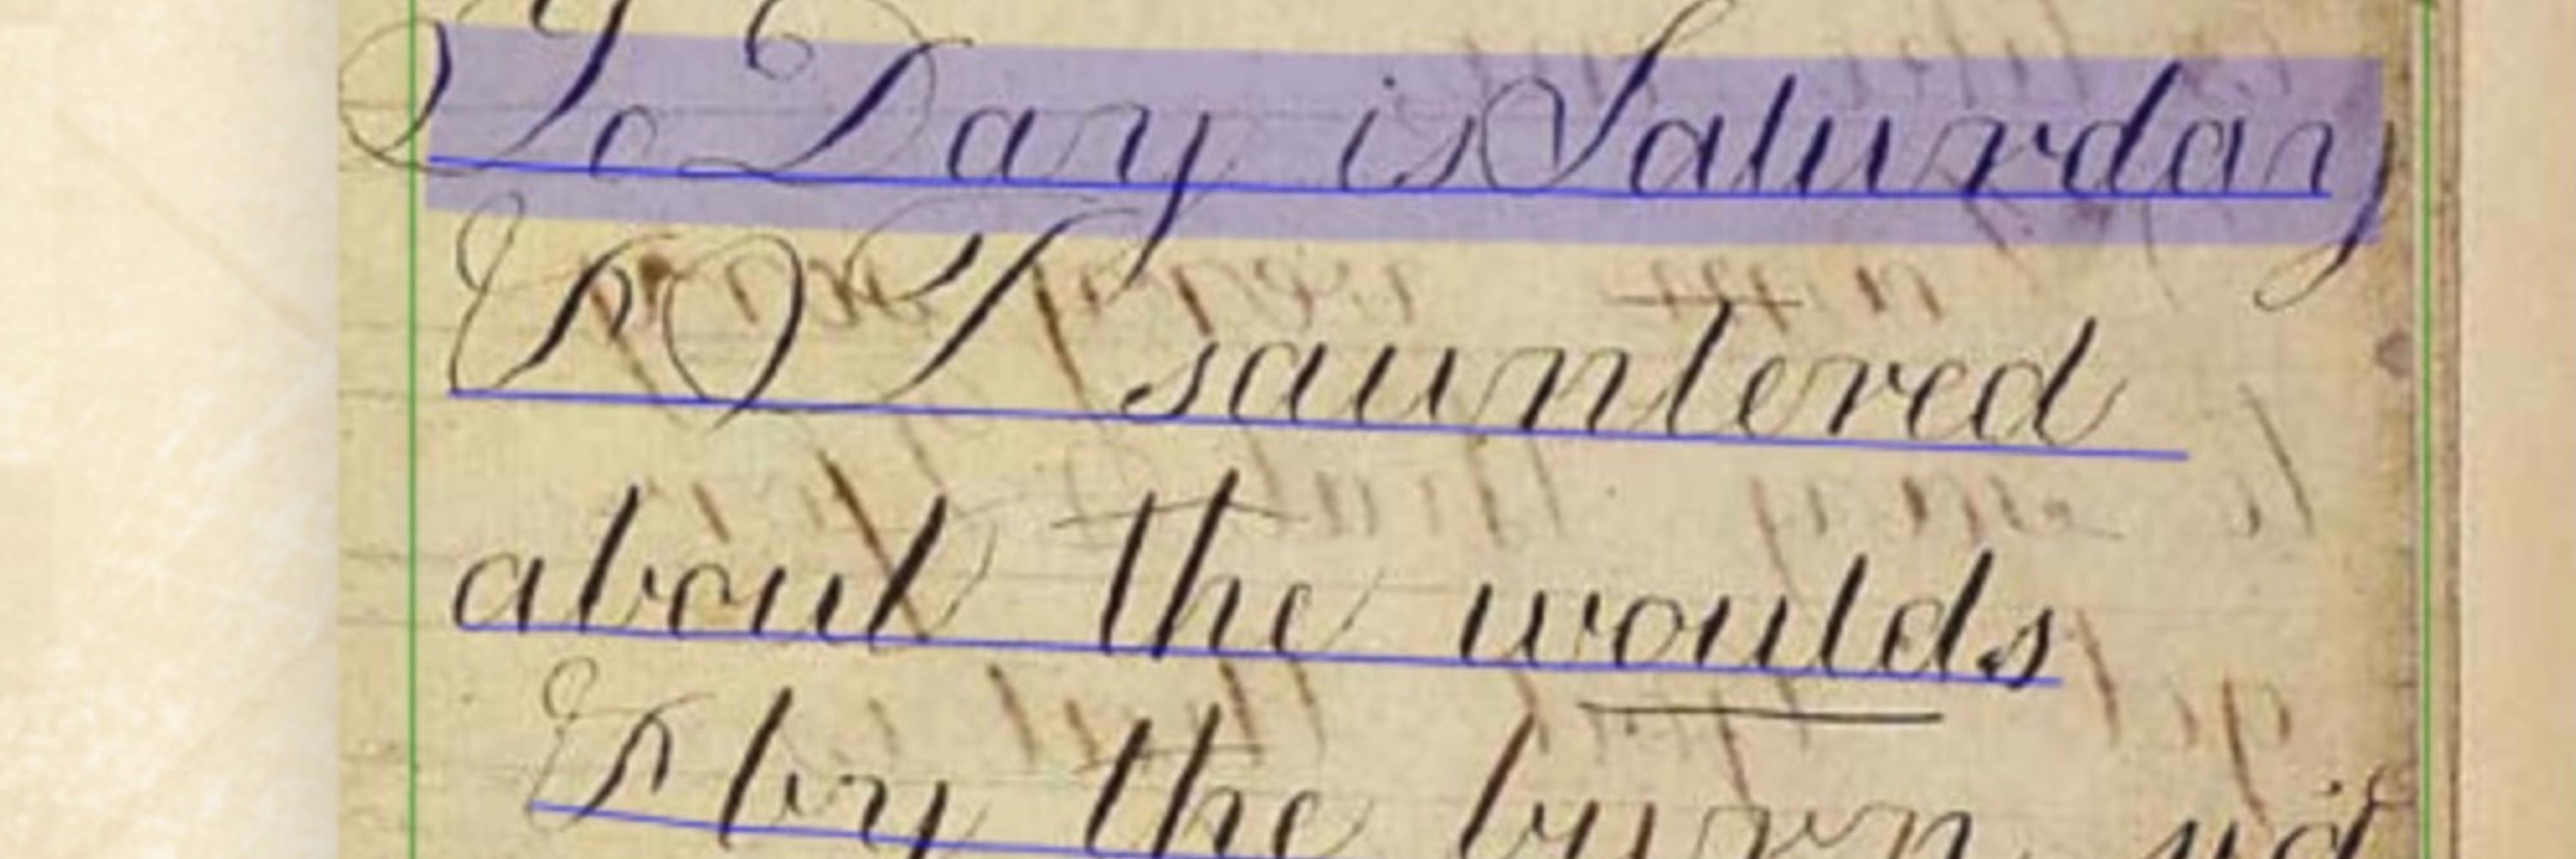 To Day is Saturday
& I sauntered
about the woulds
& by the burn